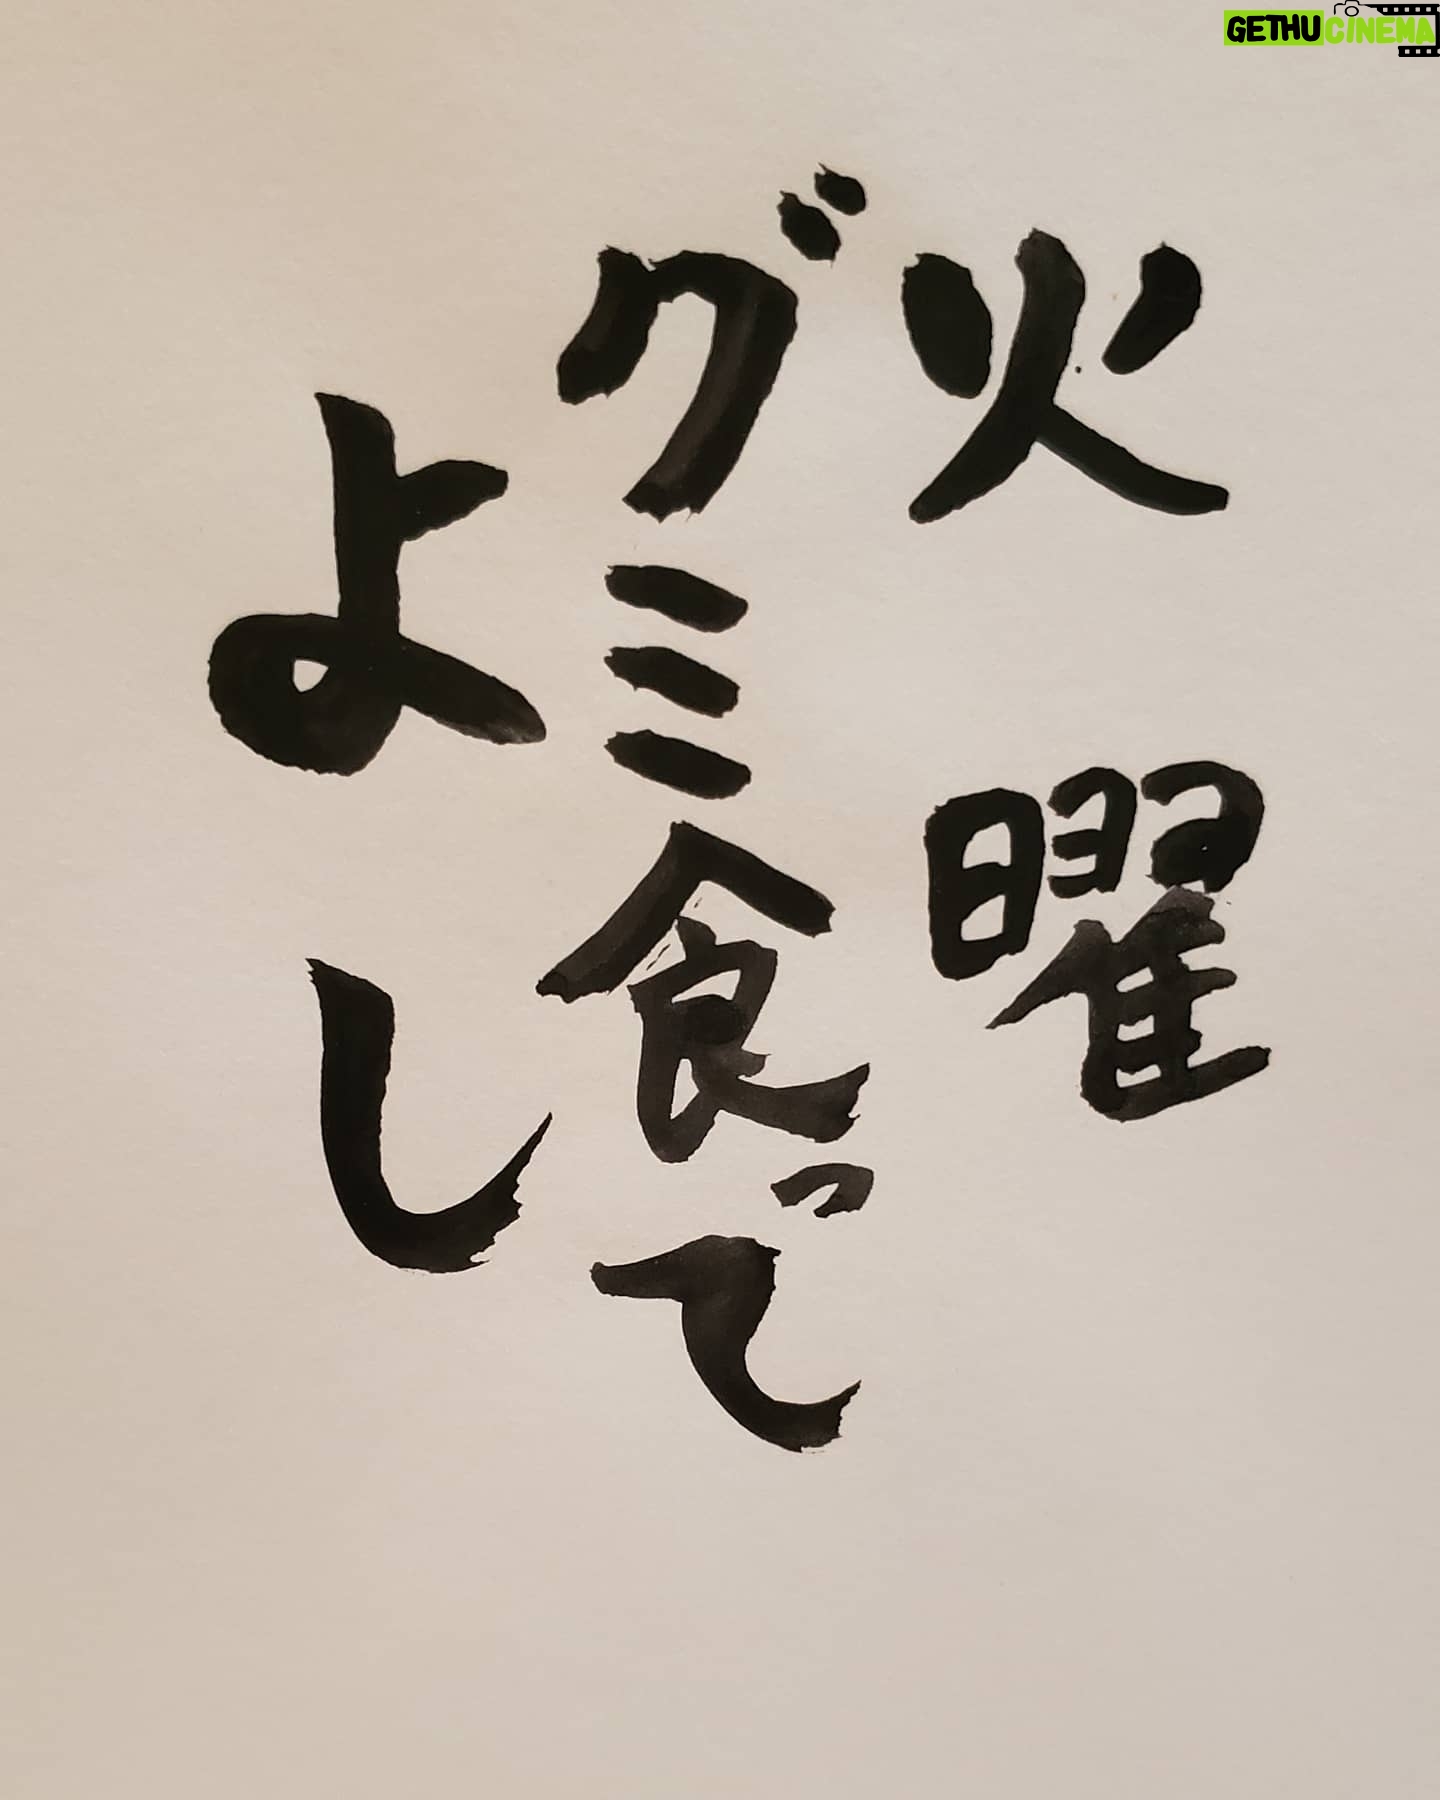 火曜
グミ食って
よし
GETHUCINEMA